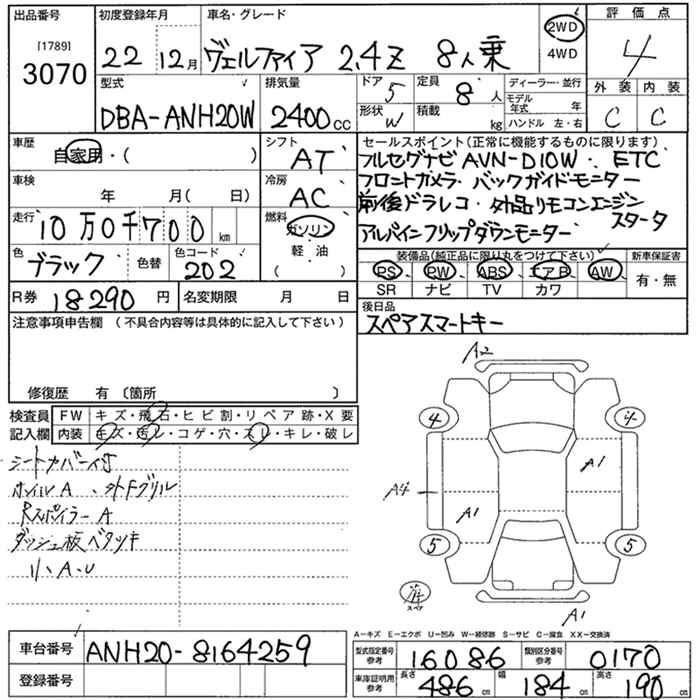 出品番号 初度登録年月 車名・グレード 評価点
[1789]
3070 22 12月 ヴェルファイア 2.4Z 8人乗 2WD 4WD 4
型式 排気量 ドア 5 定員 8人 ディーラー・並行 外装 内装
DBA-ANH20W 2400cc 形状 W 積載 kg モデル年式 年 ハンドル 左・右 C C
車歴 自家用・( ) シフト AT セールスポイント(正常に機能するものに限ります)
フルセグナビ AVN-D10W・ETC
車検 年 月( 日) 冷房 AC フロントカメラ・バックガイドモニター
前後ドラレコ・外品リモコンエンジンスタータ
走行 10万0千700km 燃料 ガソリン 軽・油 ( )
アルパインフリップダウンモニター
色 ブラック 色替 色コード 202 装備品(純正品に限り丸をつけて下さい) 新車保証書
PS PW ABS エアB AW 有・無
SR ナビ TV カワ
R券 18290円 名変期限 月 日 後日品
スペアスマートキー
注意事項申告欄 (不具合内容等は具体的に記入して下さい)
修復歴 有 〔箇所 〕
検査員記入欄 FW キズ・飛石・ヒビ割・リペア跡・X要
内装 キズ・汚レ・コゲ・穴・スレ・キレ・破レ
シートカバー付
ホイルA、外Fグリル
Rスポイラー A
ダッシュ板ベタツキ
小、A、U
A2
4 4
A1
A4
A1
5 5
スペア
A1
A-キズ E-エクボ U-凹み W-補修跡 S-サビ C-腐食 XX-交換済
車台番号 ANH20-8164259 型式指定番号 参考 16086 類別区分番号 参考 0170
登録番号 車庫証明用 参考 長さ 486cm 幅 184cm 高さ 190cm